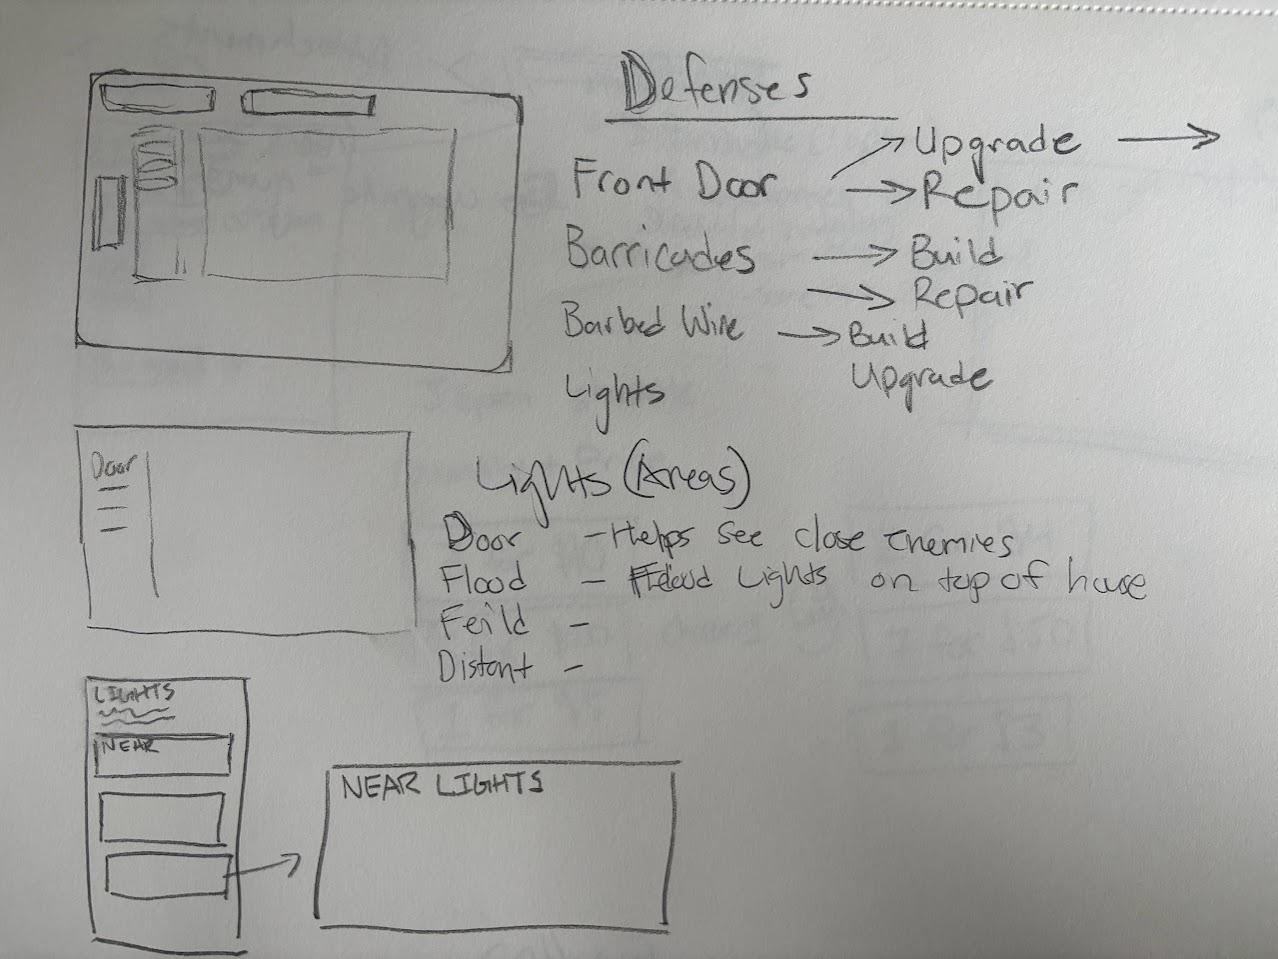 Defenses
Front Door → Upgrade →
→ Repair
Barricades → Build
→ Repair
Barbed Wire → Build
Upgrade
Lights
Door
Lights (Areas)
Door - Helps see close enemies
Flood - Flood Lights on top of house
Feild -
Distant -
LIGHTS
NEAR
NEAR LIGHTS